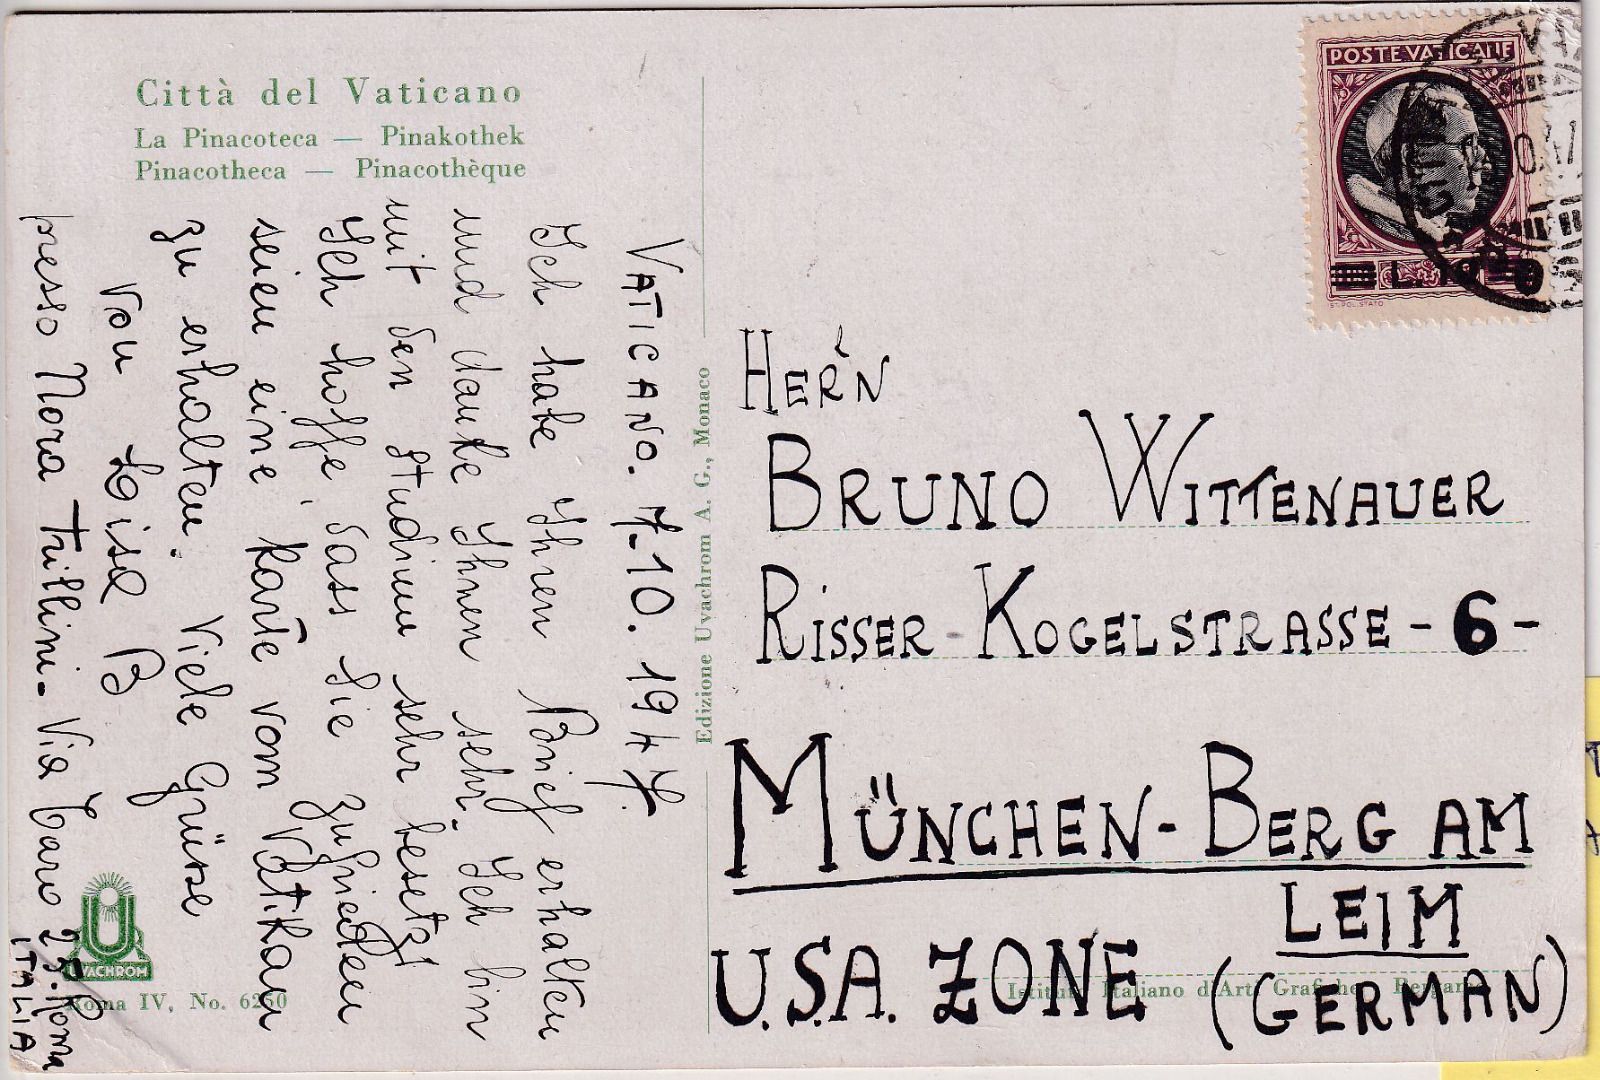 Città del Vaticano
La Pinacoteca — Pinakothek
Pinacotheca — Pinacothèque
VATICANO. 7-10. 1947.
Ich habe Ihren Brief erhalten
und danke Ihnen sehr. Ich bin
mit den Studium sehr besetzt
Ich hoffe, dass Sie zufrieden
seien eine Karte vom Vatikan
zu erhalten. Viele Grüsse
von Lisa B
presso Nora Trillini - Via Taro 25 - Roma
ITALIA
UVACHROM
Roma IV, No. 6250
Edizione Uvachrom A. G., Monaco
POSTE VATICANE
L. 10
HERN
BRUNO WITTENAUER
RISSER-KOGELSTRASSE - 6 -
MÜNCHEN-BERG AM
LEIM
U.S.A. ZONE (GERMAN)
Istituto Italiano d'Arti Grafiche Bergamo